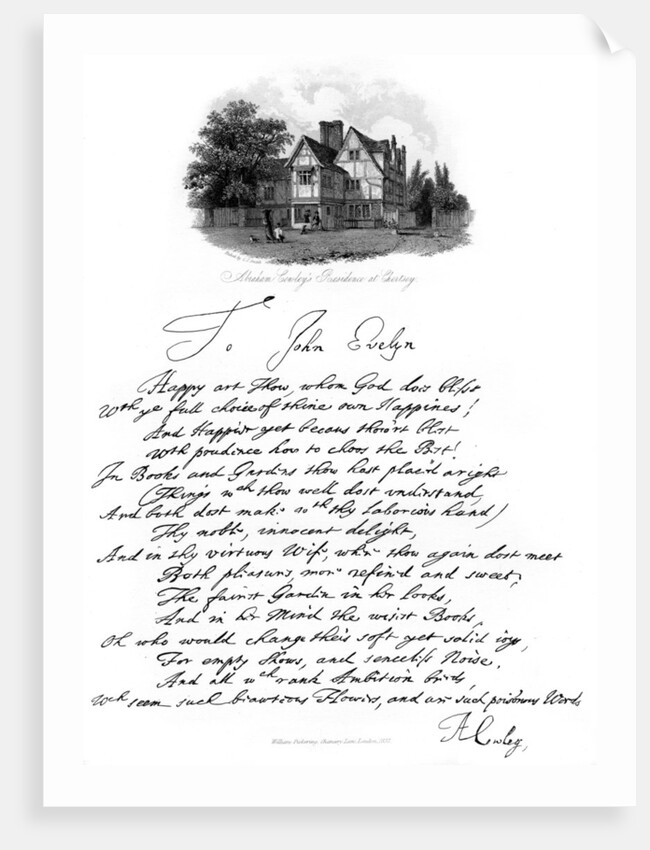 Abraham Cowley's Residence at Chertsey.
To John Evelyn
Happy art Thow, whom God does bless
Wth ye full choice of thine own Happines!
And Happier yet becaus thow'rt blest
Wth prudence how to choos the Best!
In Books and Gardens thow hast plac'd aright
(Things wch thow well dost understand,
And both dost make wth thy laborious hand)
Thy noble, innocent delight,
And in thy virtuous Wife, wher thow again dost meet
Both pleasures, more refin'd and sweet;
The fairest Garden in her looks,
And in her Mind the wisest Books.
Oh who would change theis soft yet solid ioys,
For empty Shows, and senceless Noise,
And all wch rank Ambition breeds,
Wch seem such beauteous Flowers, and are such poisonous Weeds
ACowley,
William Pickering, Chancery Lane London, 1837.